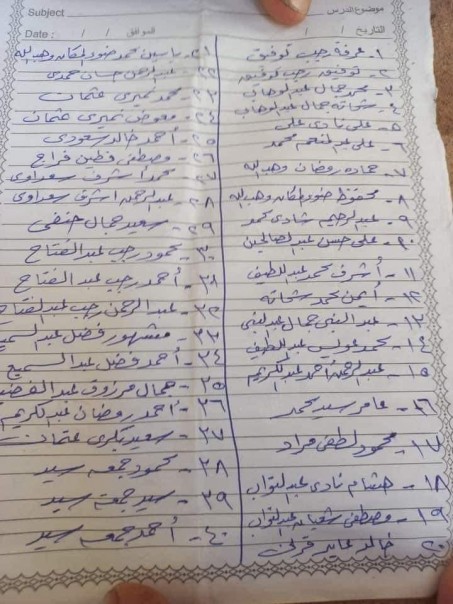 Subject : موضوع الدرس
Date : / / التاريخ / / الموافق
١- عرفة رجب توفيق
٢- توفيق رجب توفيق
٣- محمد جمال عبد الوهاب
٤- شحاته جمال عبد الوهاب
٥- على نادى على
٦- على عبد المنعم محمد
٧- حماده رمضان وهب الله
٨- محفوظ ضوى المكان وهب الله
٩- عبد الرحيم شادى محمد
١٠- على حسن عبد الصالحين
١١- أشرف محمد عبد اللطيف
١٢- أيمن محمد شحاته
١٣- عبد النبى جمال عبد النبى
١٤- محمد عويس عبد اللطيف
١٥- عبد الرحمن احمد عبد الكريم
١٦- عامر سيد محمد
١٧- محمود لطفى مراد
١٨- هشام نادى عبد التواب
١٩- مصطفى شعبان عبد التواب
٢٠- خالد عايد قرنى
٢١- ياسين محمد ضوى المكان وهب الله
٢٢- عبد الرحمن حسان حمدى
٢٣- محمد نميرى عثمان
٢٤- معوض نميرى عثمان
٢٥- أحمد خالد سعودى
٢٦- مصطفى فراج
٢٧- محمد أشرف سعداوى
٢٨- عبد الرحمن اشرف سعداوى
٢٩- سعيد جمال حنفى
٣٠- محمود رجب عبد الفتاح
٣١- أحمد رجب عبد الفتاح
٣٢- عبد الرحمن رجب عبد الفتاح
٣٣- مشهور فضل عبد السميع
٣٤- أحمد فضل عبد السميع
٣٥- جمال مرزوق عبد
٣٦- أحمد رمضان عبد الكريم
٣٧- سعيد بكرى عثمان
٣٨- محمود جمعه سيد
٣٩- سيد جمعه سيد
٤٠- أحمد جمعه سيد